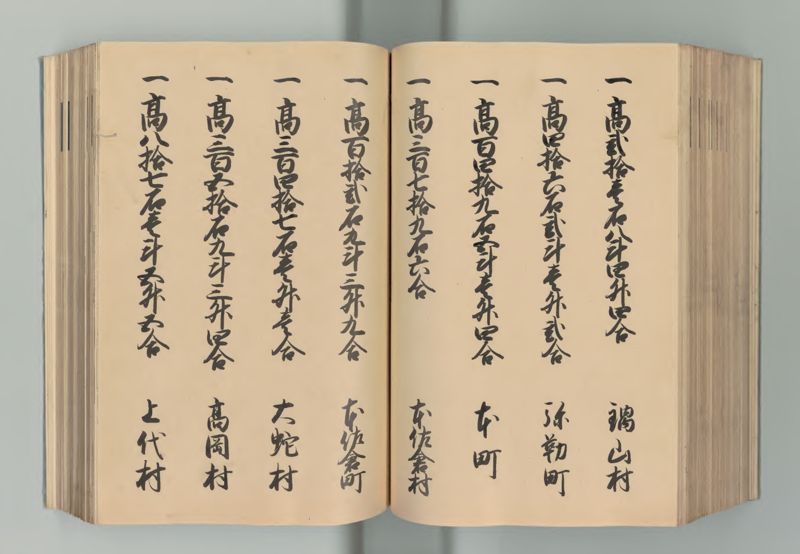 一 高弐拾壱石八斗四升四合 鏑山村
一 高四拾六石弐斗壱升弐合 弥勒町
一 高百四拾九石五斗壱升四合 本町
一 高三百七拾九石六合 本佐倉村
一 高百拾弐石九斗三升九合 本佐倉町
一 高三百四拾七石壱升壱合 大蛇村
一 高三百五拾石九斗三升四合 高岡村
一 高八拾七石壱斗五升五合 上代村